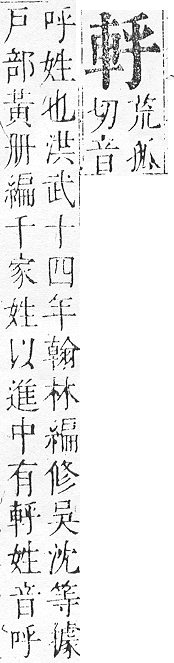 軤
荒孤
切音
呼姓也洪武十四年翰林編修吳沈等據
戶部黃册編千家姓以進中有軤姓音呼